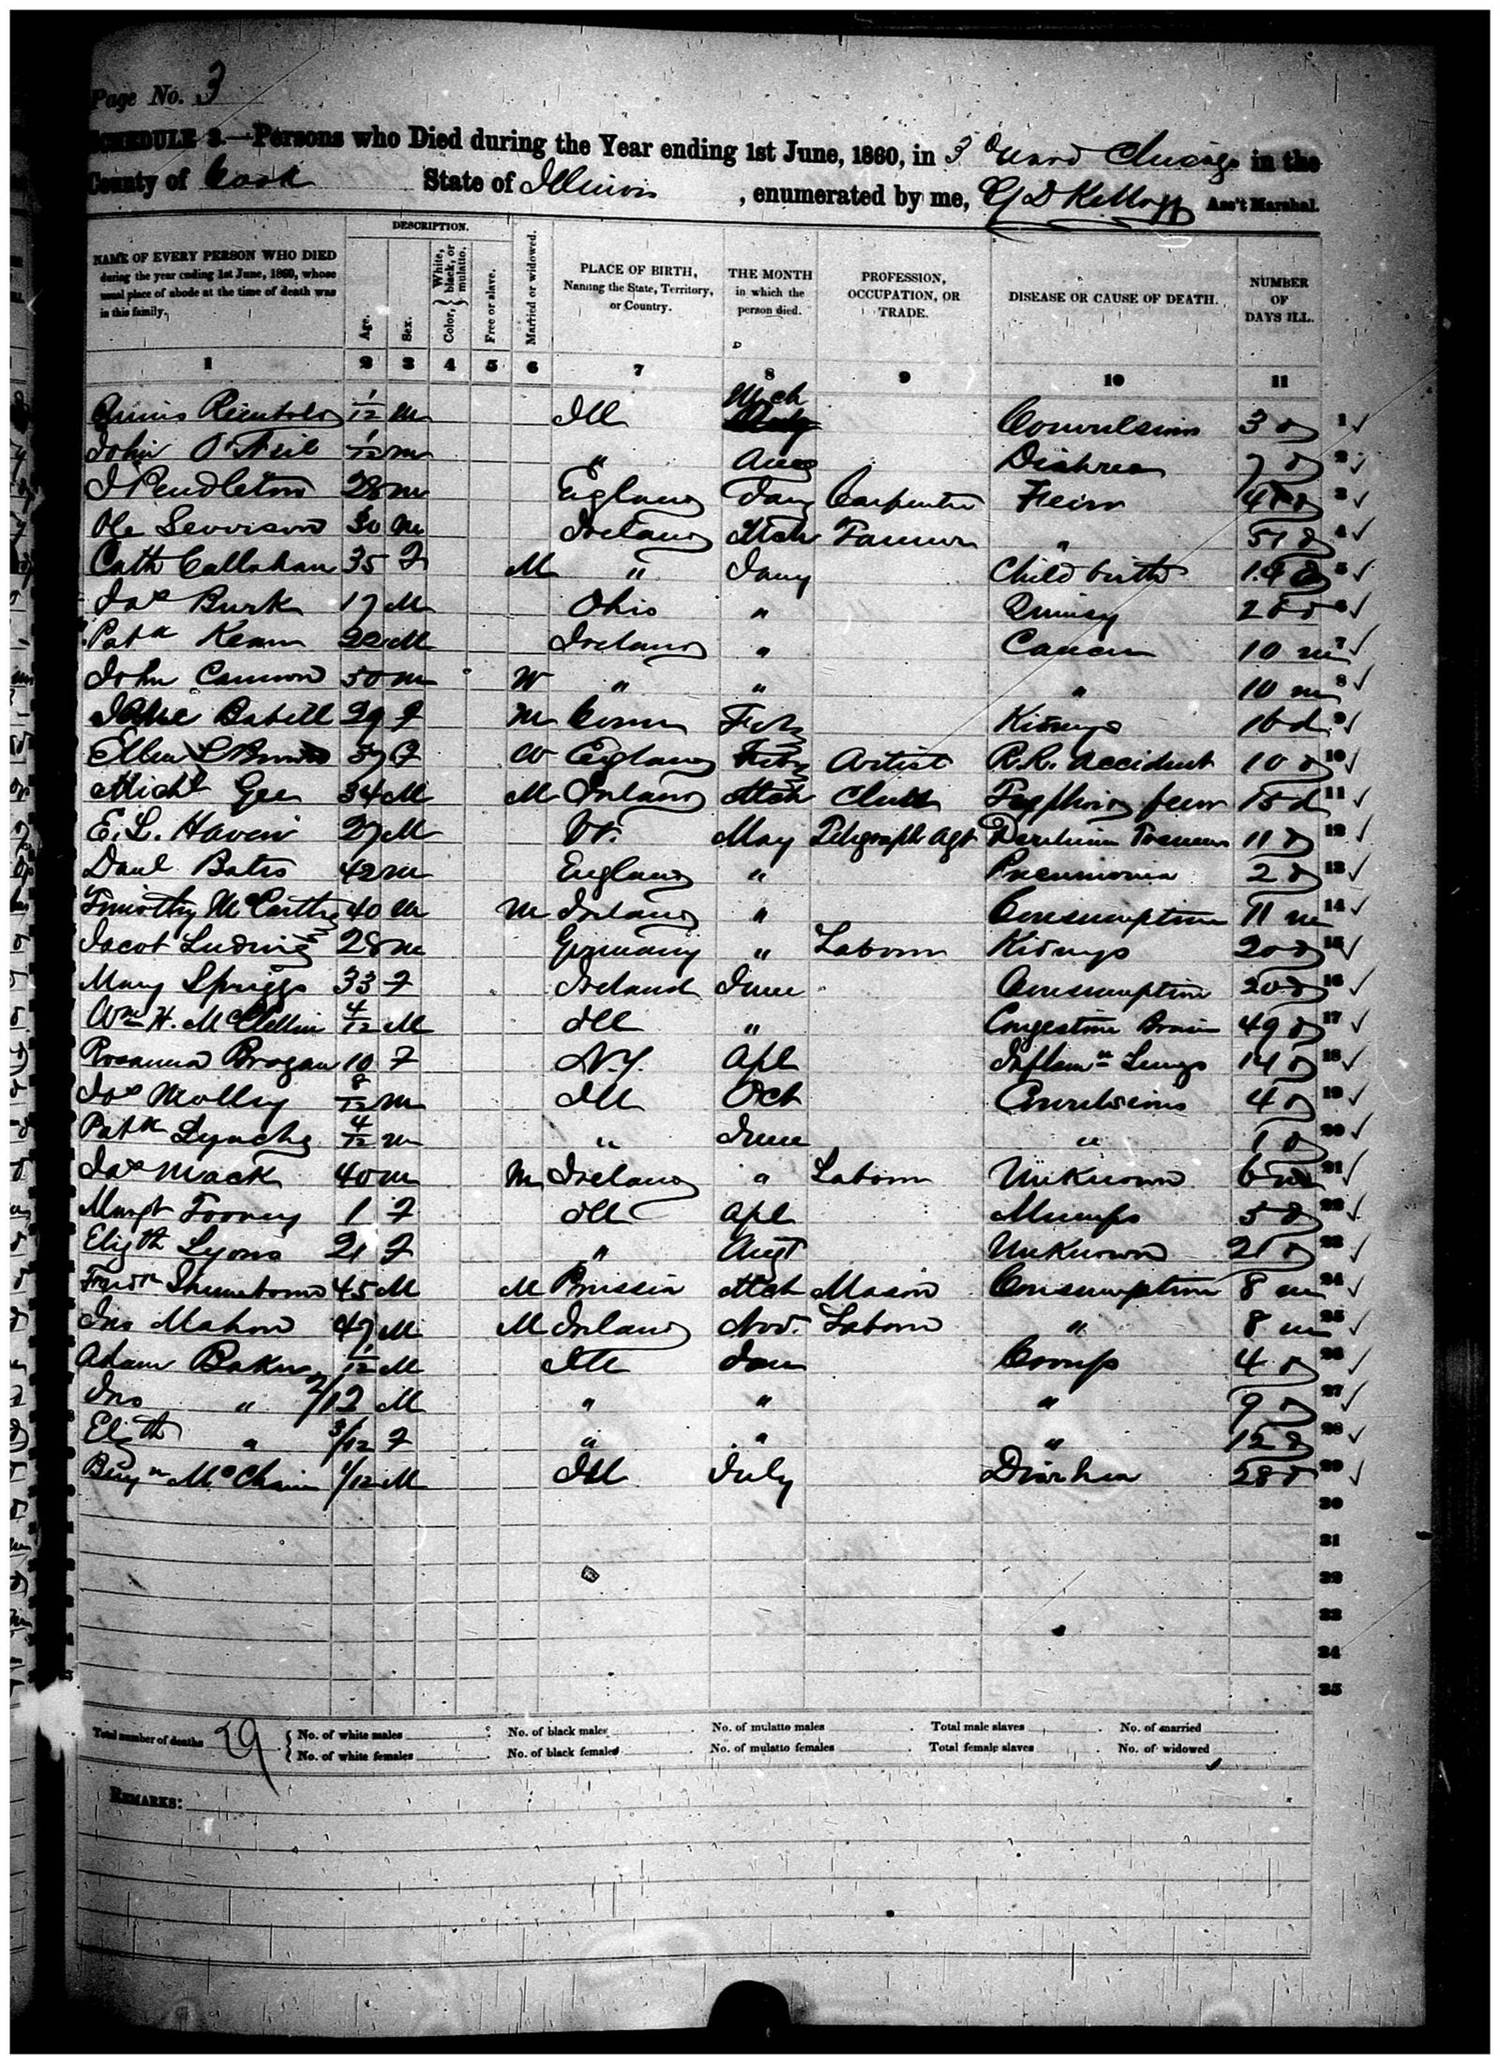 Page No. 3
SCHEDULE 3.—Persons who Died during the Year ending 1st June, 1860, in 3d Ward Chicago in the
County of Cook State of Illinois, enumerated by me, Kellogg Ass't Marshal.
DESCRIPTION.
NAME OF EVERY PERSON WHO DIED during the year ending 1st June, 1860, whose usual place of abode at the time of death was in this family. Age. Sex. Color, { White, black, or mulatto. Free or slave. Married or widowed. PLACE OF BIRTH, Naming the State, Territory, or Country. THE MONTH in which the person died. PROFESSION, OCCUPATION, OR TRADE. DISEASE OR CAUSE OF DEATH. NUMBER OF DAYS ILL.
1 2 3 4 5 6 7 8 9 10 11
1/12 M Ill Mch Convulsions 3 d 1
John O'Neil 1/12 M " Aug Diahrea 7 d 2
J Pendleton 28 M England Jany Carpenter Fever 3
30 M Ireland Mch Farmer " 4
Cath Callahan 35 F M " Jany Child birth 5
Jas Burk 17 M Ohio " Quinsy 6
Patk 22 M Ireland " Cancer 10 m 7
John Cannon 50 M W " " " 10 m 8
29 F M Conn Feby Kidneys 16 d 9
Ellen 39 F W England Feby Artist R.R. Accident 10 d 10
Michl Gee 34 M M Ireland Mch Clerk Typhoid fever 15 d 11
E. L. Haven 27 M Vt. May Telegraph Agt Derilium Tremens 11 d 12
Danl Bates 42 M England " Pneumonia 2 d 13
Timothy McCarthy 40 M M Ireland " Consumption 11 m 14
Jacob Ludwig 28 M Germany " Laborer Kidneys 20 d 15
Mary Spriggs 33 F Ireland June Consumption 20 d 16
Wm H. McClellin 4/12 M Ill " Congestion Brain 49 d 17
Rosanna Brogan 10 F N.Y. Apl Inflamn Lungs 14 d 18
Jas Molloy 8/12 M Ill Oct Convulsions 4 d 19
Patk Lynch 4/12 M " June " 1 d 20
Jas Mack 40 M M Ireland " Laborer Unknown 6 21
Margt Tooney 1 F Ill Apl Mumps 5 d 22
Elizth Lyons 21 F " Augt Unknown 21 d 23
45 M M Prussia Mch Mason Consumption 8 m 24
Jno Mahon 47 M M Ireland Nov. Laborer " 8 m 25
Adam Baker 1/12 M Ill Jan Croup 4 d 26
Jno " 2/12 M " " " 9 d 27
Elizth " 3/12 F " " " 12 d 28
Benjn McChain 1/12 M Ill July Diarhea 28 d 29
30
31
32
33
34
35
Total number of deaths 29 { No. of white males No. of black males No. of mulatto males Total male slaves No. of married
{ No. of white females No. of black females No. of mulatto females Total female slaves No. of widowed
REMARKS: